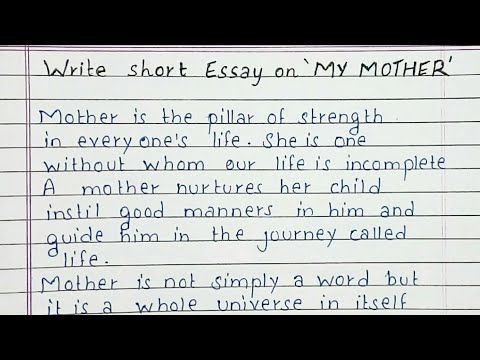 Write short Essay on 'MY MOTHER'
Mother is the pillar of strength
in everyone's life. She is one
without whom our life is incomplete
A mother nurtures her child
instil good manners in him and
guide him in the journey called
life.
Mother is not simply a word but
it is a whole universe in itself